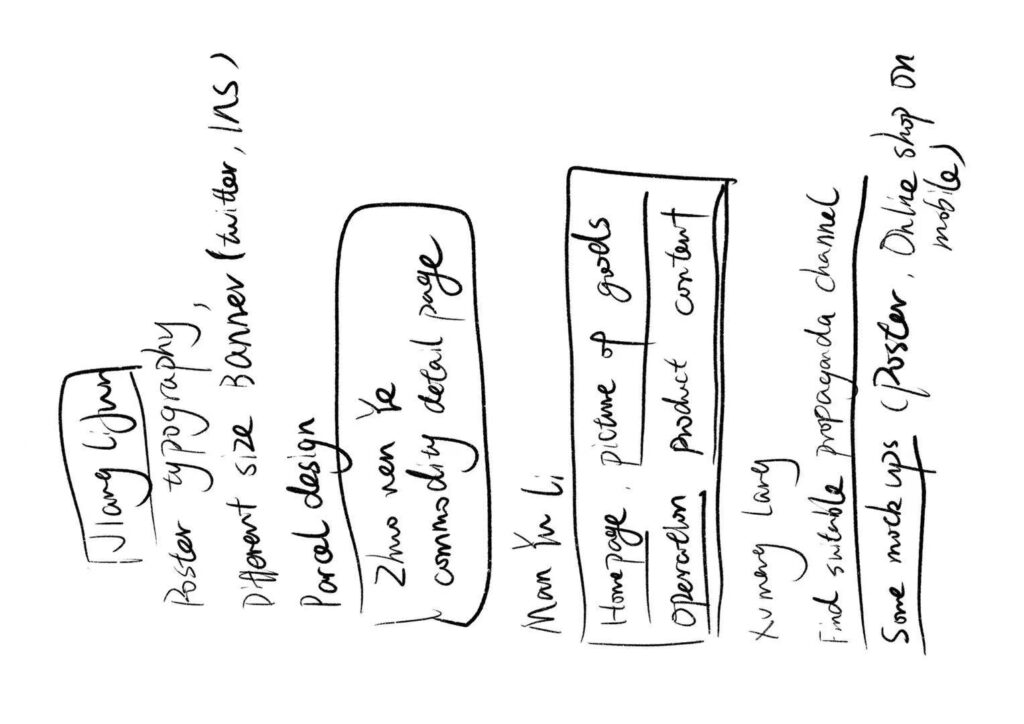 Jiang Lijun
Poster typography,
Different size Banner (twitter, Ins)
Parcel design
Zhuo wen Ye
commodity detail page
Man Yu Li
Homepage, picture of goods
Operation product content
Xumeng Lang
Find suitable propaganda channel
Some mock ups (Poster, Online shop on
mobile)